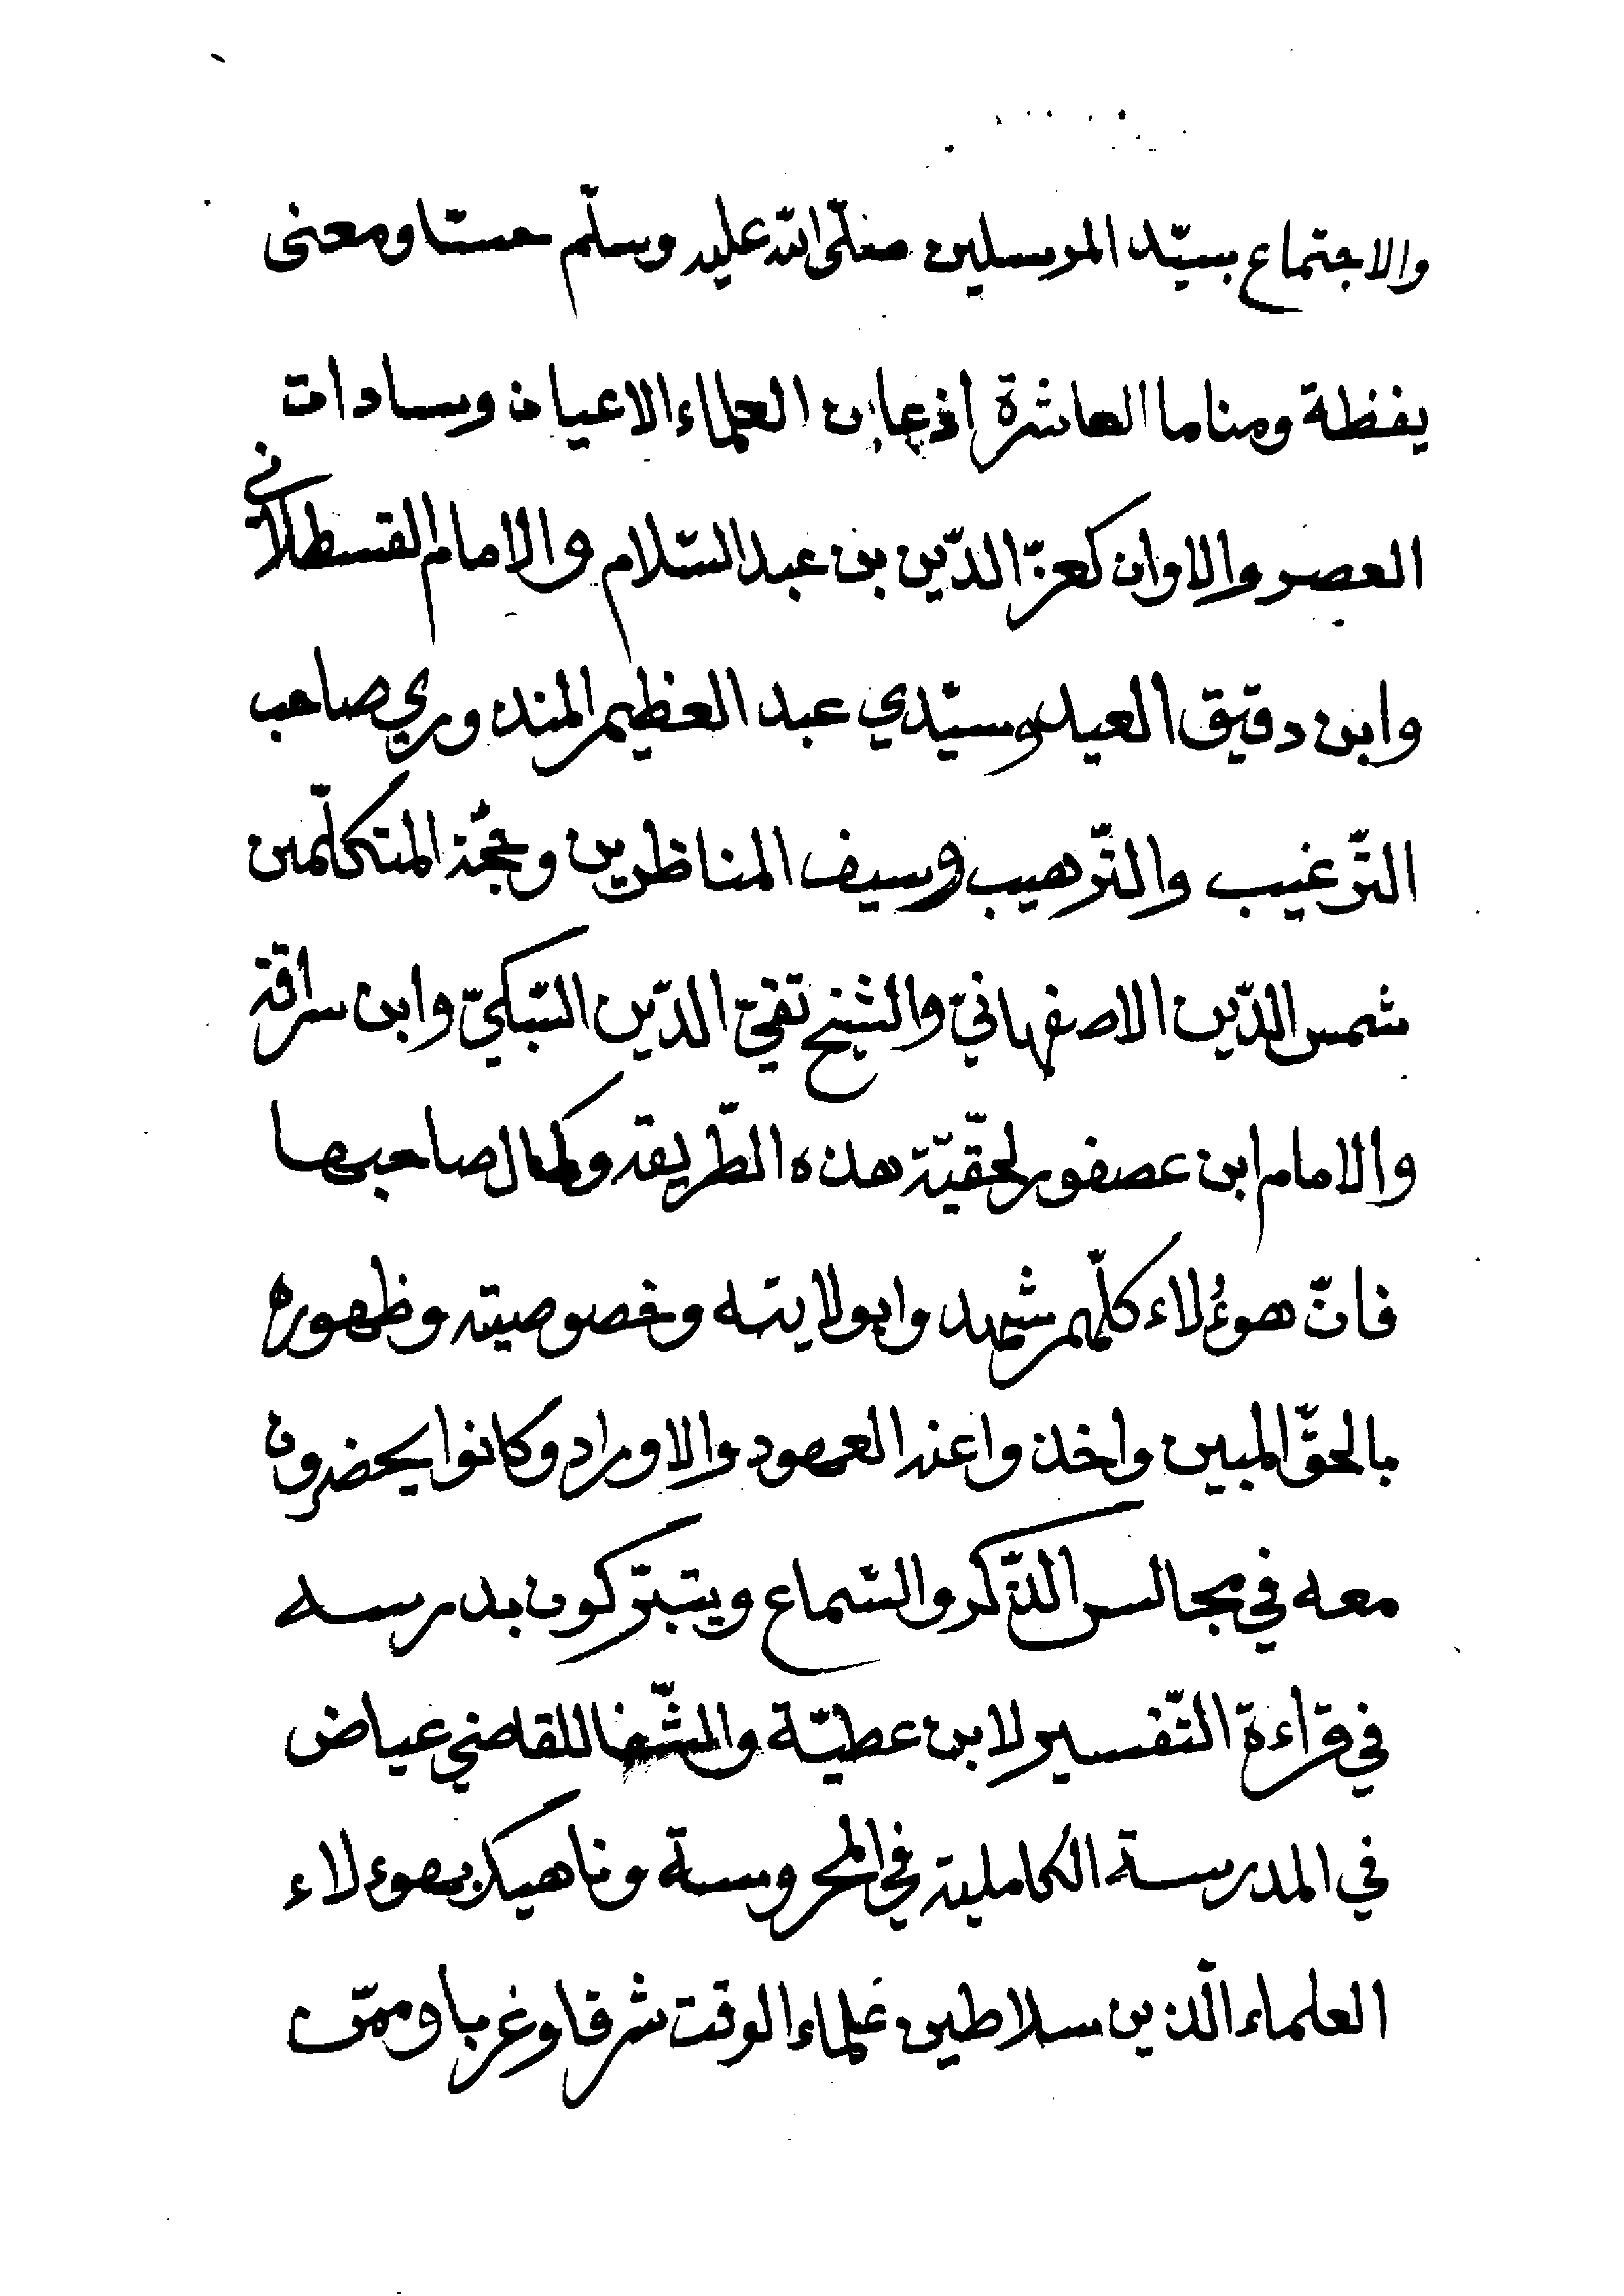 والاجتماع بسيّد المرسلين صلّى الله عليه وسلّم حسّا ومعنى
يقظة ومناما العاشرة اذعان العلماء الاعيان وسادات
العصر والاوان كعزّ الدّين بن عبد السّلام والامام القسطلاني
وابن دقيق العيد وسيّدي عبد العظيم المنذوري صاحب
التّرغيب والتّرهيب وسيف المناظرين وحجّة المتكلّمين
شمس الدّين الاصفهانيّ والشيخ تقيّ الدّين السّبكيّ وابن سراقة
والامام ابن عصفور لحقّيّة هذه الطّريقه وكمال صاحبها
فانّ هوءُلاء كلّهم شهدوا بولايته وخصوصيته وظهوره
بالحقّ المبين واخذوا عنه العهود والاوراد وكانوا يحضرون
معه في مجالس الذّكر والسّماع ويتبرّكون بدرسه
في قراءة التّفسير لابن عطيّة والشّفا للقاضي عياض
في المدرسة الكاملية في المحروسة وناهيك بهوءلاء
العلماء الّذين سلاطين علماء الوقت شرقا وغربا وممّن